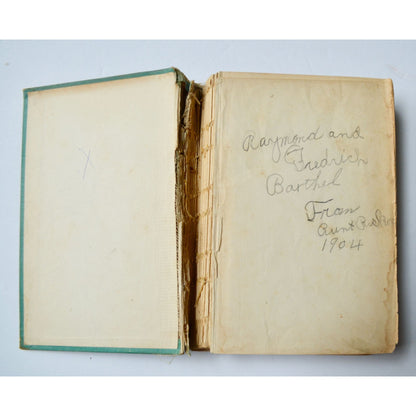 X
Raymond and
Fredrich
Barthel
Fran
Aunt
1904